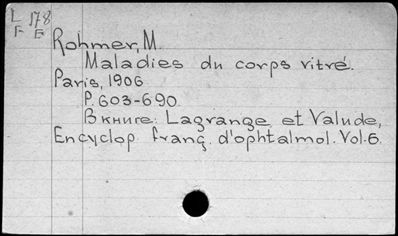 L 178
F E
Rohmer, M.
Maladies du corps vitré.
Paris, 1906
P. 603-690.
В книге: Lagrange et Valude,
Encyclop. franç. d'ophtalmol. Vol. 6.